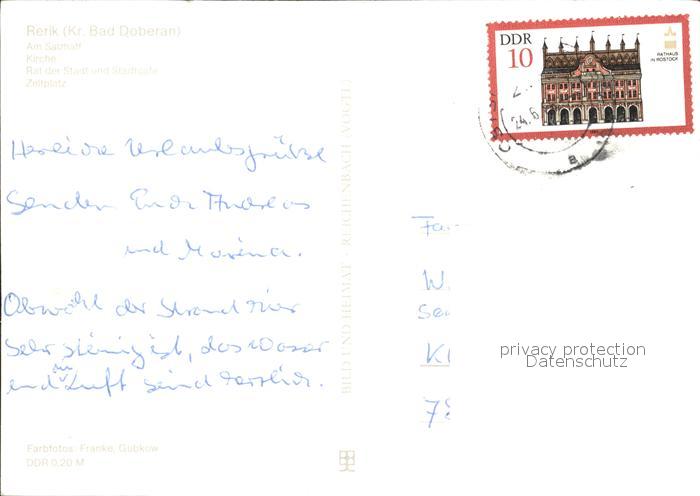 Rerik (Kr. Bad Doberan)
Am Salzhaff
Kirche
Rat der Stadt und Stadtcafe
Zeltplatz
DDR
10
RATHAUS
IN ROSTOCK
24.6
Herzliche Urlaubsgrüße
senden Euch Andreas
und Marina.
Obwohl der Strand hier
sehr steinig ist, das Wasser
und die Luft sind herrlich.
BILD UND HEIMAT · REICHENBACH (VOGTL)
Fa
W
Se
K
78
privacy protection
Datenschutz
Farbfotos: Franke, Gubkow
DDR 0,20 M